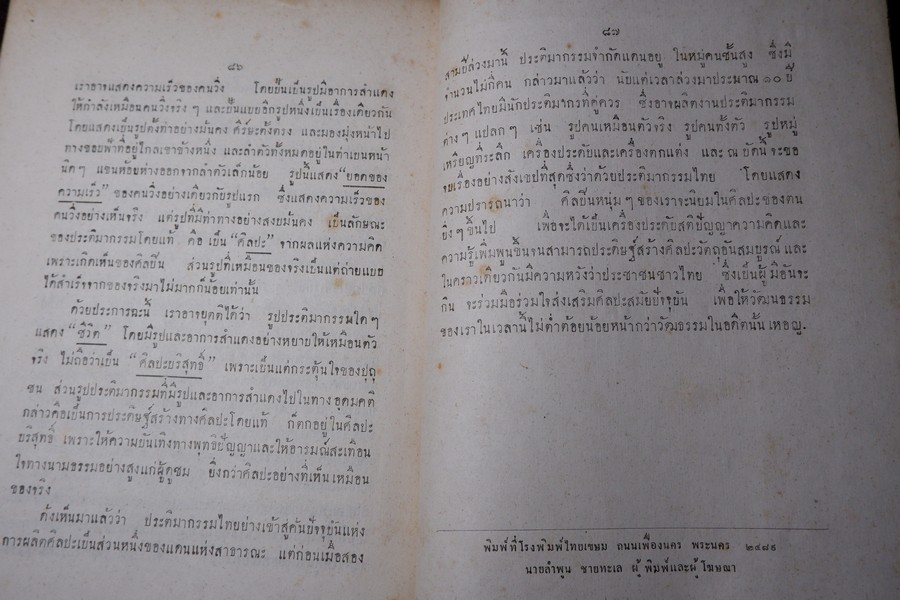 ๘๖
เราอาจแสดงความเร็วของคนวิ่ง โดยปั้นเป็นรูปมีอาการสำแดง
ให้กำลังเหมือนคนวิ่งจริง ๆ และปั้นแยกอีกรูปหนึ่งเป็นเรื่องเดียวกัน
โดยแสดงเป็นรูปตั้งท่าอย่างมั่นคง ศีร์ษะตั้งตรง และมองมุ่งหน้าไป
ทางซอยเท้าที่อยู่ไกลเขาข้างหนึ่ง และลำตัวทั้งหมดอยู่ในท่าเยนหน้า
นิดๆ แขนห้อยห่างออกจากลำตัวเล็กน้อย รูปนี้แสดง “ยอดของ
ความเร็ว” ของคนวิ่งอย่างเดียวกับรูปแรก ซึ่งแสดงความเร็วของ
คนวิ่งอย่างเห็นจริง แต่รูปที่มีท่าทางอย่างสงบมั่นคง เป็นลักษณะ
ของประติมากรรมโดยแท้ คือ เป็น “ศิลปะ” จากผลแห่งความคิด
เพราะเกิดเห็นของศิลปิน ส่วนรูปที่เหมือนของจริงเป็นแต่ถ่ายแบบ
ได้สำเร็จจากของจริงมาไม่มากก็น้อยเท่านั้น
ด้วยประการฉะนี้ เราอาจยุตติได้ว่า รูปประติมากรรมใดๆ
แสดง “ชีวิต” โดยมีรูปและอาการสำแดงอย่างหยาบให้เหมือนตัว
จริง ไม่ถือว่าเป็น “ศิลปะบริสุทธิ์” เพราะเป็นแต่กระตุ้นใจของปุถุ
ชน ส่วนรูปประติมากรรมที่มีรูปและอาการสำแดงไปในทางอุดมคติ
กล่าวคือเป็นการประดิษฐ์สร้างทางศิลปะโดยแท้ ก็ตกอยู่ในศิลปะ
บริสุทธิ์ เพราะให้ความบันเทิงทางพุทธิปัญญาและให้อารมณ์สะเทือน
ใจทางนามธรรมอย่างสูงแก่ผู้ดูชม ยิ่งกว่าศิลปะอย่างที่เห็นเหมือน
ของจริง
ดังเห็นมาแล้วว่า ประติมากรรมไทยย่างเข้าสู่คันปัจจุบันแห่ง
การผลิตศิลปะเป็นส่วนหนึ่งของแดนแห่งสาธารณะ แต่ก่อนเมื่อสอง
๘๗
สามปีล่วงมานี้ ประติมากรรมจำกัดแดนอยู่ ในหมู่คนชั้นสูง ซึ่งมี
จำนวนไม่กี่คน กล่าวมาแล้วว่า นับแต่เวลาล่วงมาประมาณ ๑๐ ปี
ประเทศไทยมีนักประติมากรที่คู่ควร ซึ่งอาจผลิตงานประติมากรรม
ต่างๆ แปลกๆ เช่น รูปคนเหมือนตัวจริง รูปคนทั้งตัว รูปหมู่
เหรียญที่ระลึก เครื่องประดับและเครื่องตกแต่ง และ ณ บัดนี้ จะขอ
จบเรื่องอย่างสังเขปที่สุดซึ่งว่าด้วยประติมากรรมไทย โดยแสดง
ความปรารถนาว่า ศิลปินหนุ่มๆ ของเราจะนิยมในศิลปะของตน
ยิ่งๆ ขึ้นไป เพื่อจะได้เป็นเครื่องประดับสติปัญญาความคิดและ
ความรู้เพิ่มพูนขึ้นจนสามารถประดิษฐ์สร้างศิลปะวัตถุอันสมบูรณ์ และ
ในคราวเดียวกันมีความหวังว่าประชาชนชาวไทย ซึ่งเป็นผู้มีอันจะ
กิน จะร่วมมือร่วมใจส่งเสริมศิลปะสมัยปัจจุบัน เพื่อให้วัฒนธรรม
ของเราในเวลานี้ไม่ต่ำต้อยน้อยหน้ากว่าวัฒธรรมในอดีตนั้น เทอญ.
พิมพ์ที่โรงพิมพ์ไทยเขษม ถนนเฟื่องนคร พระนคร ๒๔๘๙
นายลำพูน ชายทะเล ผู้พิมพ์และผู้โฆษณา